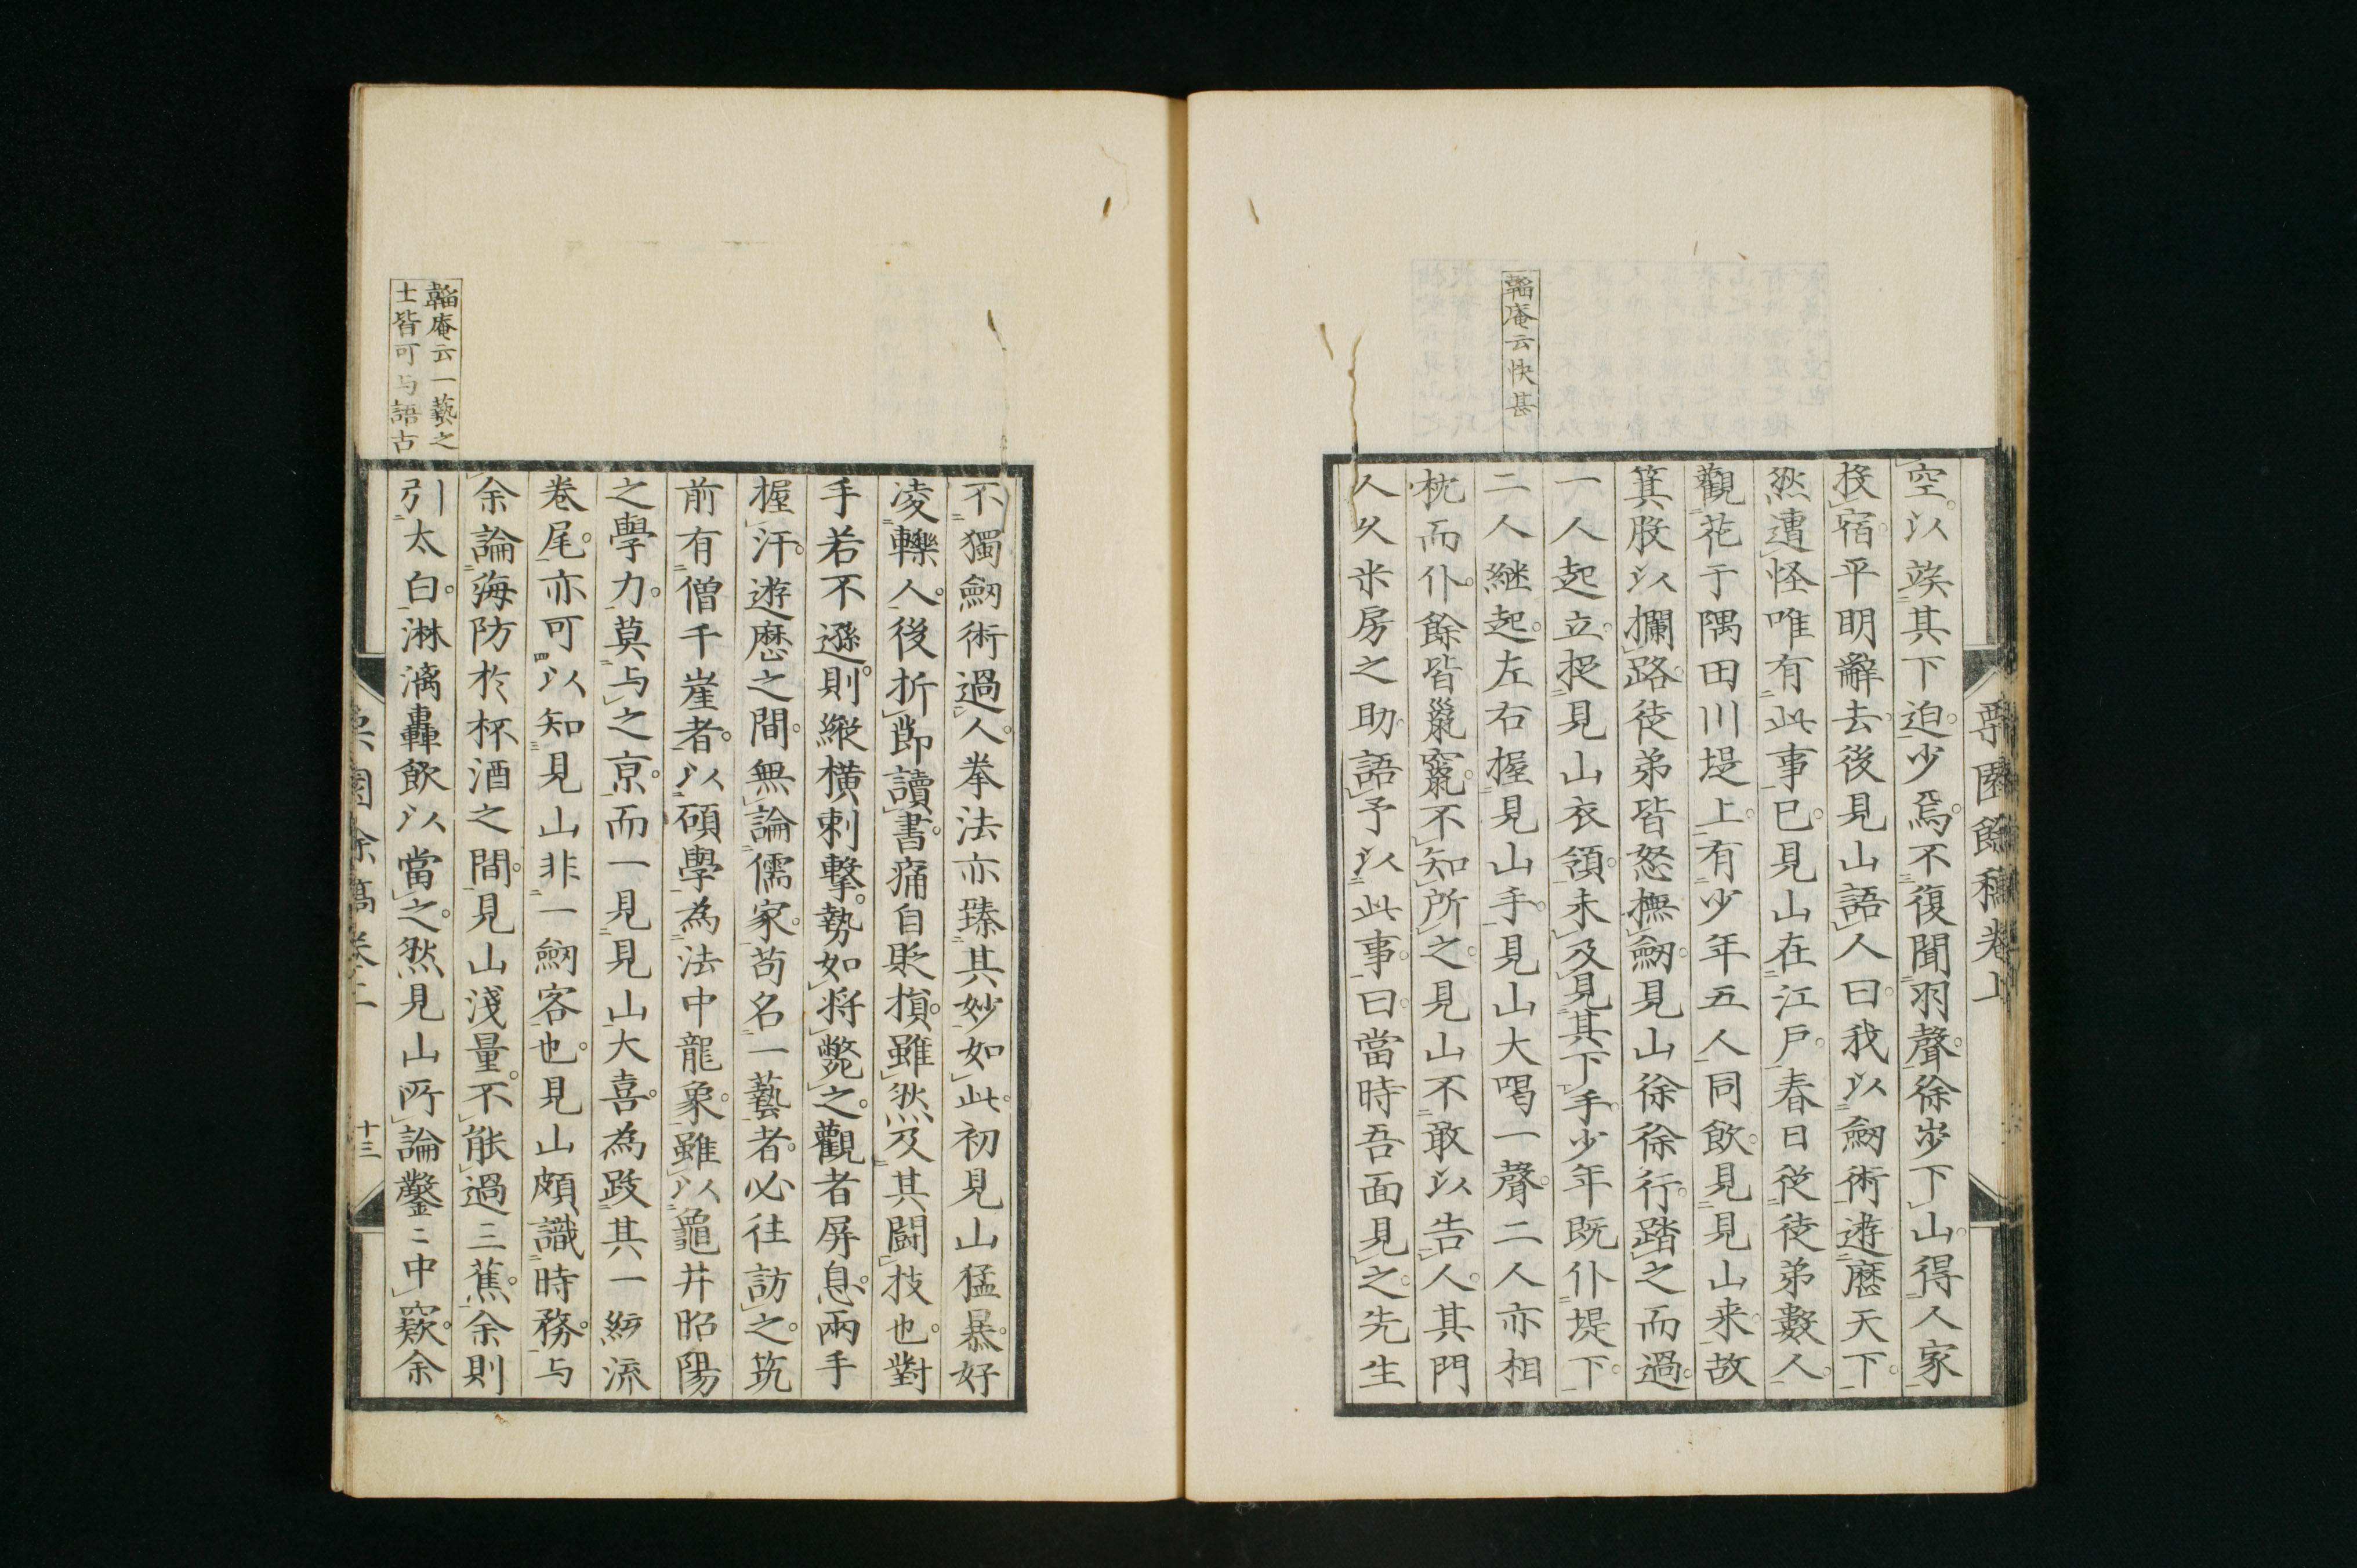 韜庵云快甚
空以竢其下迫少焉不復聞羽聲徐步下山得人家
投宿平明辭去後見山語人曰我以劒術遊歷天下
然遭怪唯有此事已見山在江戶春日從徒弟數人
觀花于隅田川堤上有少年五人同飮見見山来故
箕股以攔路徒弟皆怒撫劒見山徐徐行踏之而過
一人起立捉見山衣領未及見其下手少年既仆堤下
二人継起左右握見山手見山大喝一聲二人亦相
枕而仆餘皆鼠竄不知所之見山不敢以告人其門
人久米房之助語予以此事曰當時吾面見之先生
韜庵云一藝之
士皆可与語古
不獨劒術過人拳法亦臻其妙如此初見山猛暴好
凌轢人後折節讀書痛自貶損雖然及其鬭技也對
手若不遜則縱横刺擊勢如將斃之觀者屏息兩手
握汗遊歷之間無論儒家苟名一藝者必往訪之筑
前有僧千崖者以碩學為法中龍象雖以龜井昭陽
之學力莫与之京而一見見山大喜為跋其一絃流
卷尾亦可以知見山非一劒客也見山頗識時務与
余論海防於杯酒之間見山淺量不能過三蕉余則
引太白淋漓轟飲以當之然見山所論鑿〻中窾余
十三